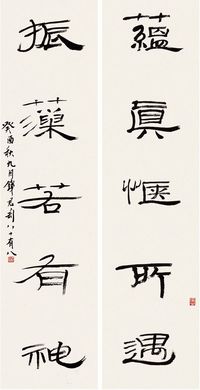 蘊眞愜所遇
振藻若有神
癸酉秋九月 八十有八